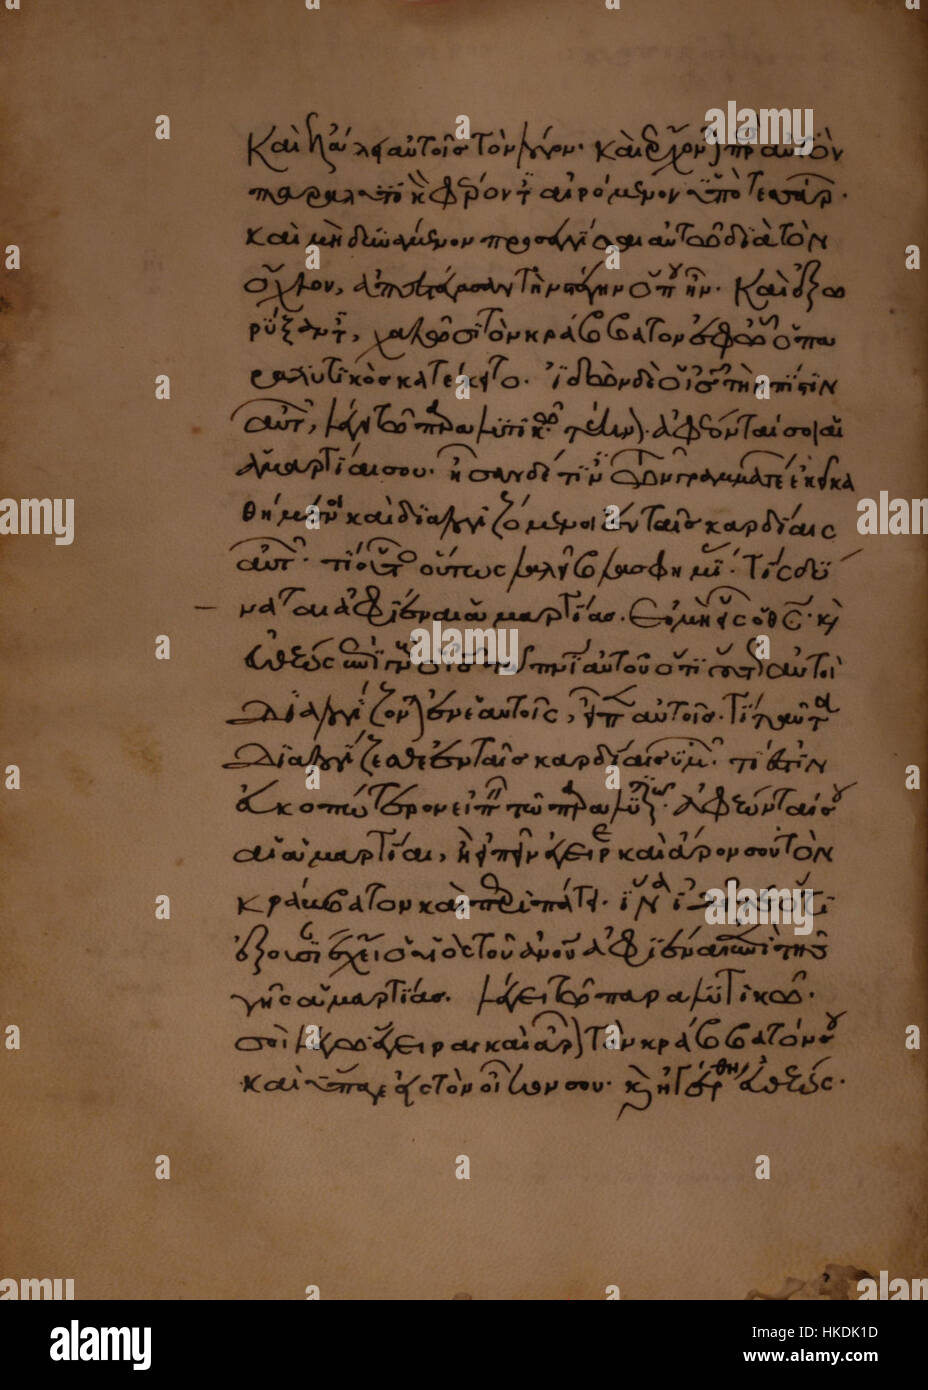 Καὶ ἐλάλει αὐτοῖς τὸν λόγον. καὶ ἔρχονται πρὸς αὐτὸν
παραλυτικὸν φέροντες αἰρόμενον ὑπὸ τεσσάρων.
καὶ μὴ δυνάμενοι προσεγγίσαι αὐτῷ διὰ τὸν
ὄχλον, ἀπεστέγασαν τὴν στέγην ὅπου ἦν. Καὶ ἐξο
ρύξαντες, χαλῶσι τὸν κράββατον ἐφ' ᾧ ὁ πα
ραλυτικὸς κατέκειτο. ἰδὼν δὲ ὁ ις τὴν πίστιν
αὐτῶν, λέγει τῷ παραλυτικῷ τέκνον. ἀφέωνταί σοι αἱ
ἁμαρτίαι σου. ἦσαν δέ τινες τῶν γραμματέων ἐκεῖ κα
θήμενοι καὶ διαλογιζόμενοι ἐν ταῖς καρδίαις
αὐτῶν. τί οὗτος οὕτως λαλεῖ βλασφημίας. τίς δύ
ναται ἀφιέναι ἁμαρτίας. εἰ μὴ εἷς ὁ θς. καὶ
εὐθέως ἐπιγνοὺς ὁ ις τῷ πνι αὐτοῦ ὅτι οὕτως αὐτοὶ
διαλογίζονται ἐν ἑαυτοῖς, εἶπεν αὐτοῖς. τί ταῦτα
διαλογίζεσθε ἐν ταῖς καρδίαις ὑμῶν. τί ἐστιν
εὐκοπώτερον εἰπεῖν τῷ παραλυτικῷ. ἀφέωνταί σου
αἱ ἁμαρτίαι, ἢ εἰπεῖν ἔγειρε καὶ ἆρον σου τὸν
κράββατον καὶ περιπάτει. ἵνα δὲ εἰδῆτε ὅτι
ἐξουσίαν ἔχει ὁ υἱὸς τοῦ ανου ἀφιέναι ἐπὶ τῆς
γῆς ἁμαρτίας. λέγει τῷ παραλυτικῷ.
σοὶ λέγω ἔγειραι καὶ ἆρον τὸν κράββατόν σου
καὶ ὕπαγε εἰς τὸν οἶκόν σου. καὶ ἠγέρθη εὐθέως.
alamy stock photo
HKDK1D
www.alamy.com